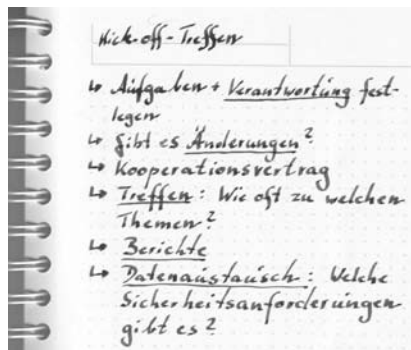 Kick-off-Treffen
↳ Aufgaben + Verantwortung fest-
legen
↳ Gibt es Änderungen?
↳ Kooperationsvertrag
↳ Treffen: Wie oft zu welchen
Themen?
↳ Berichte
↳ Datenaustausch: Welche
Sicherheitsanforderungen
gibt es?